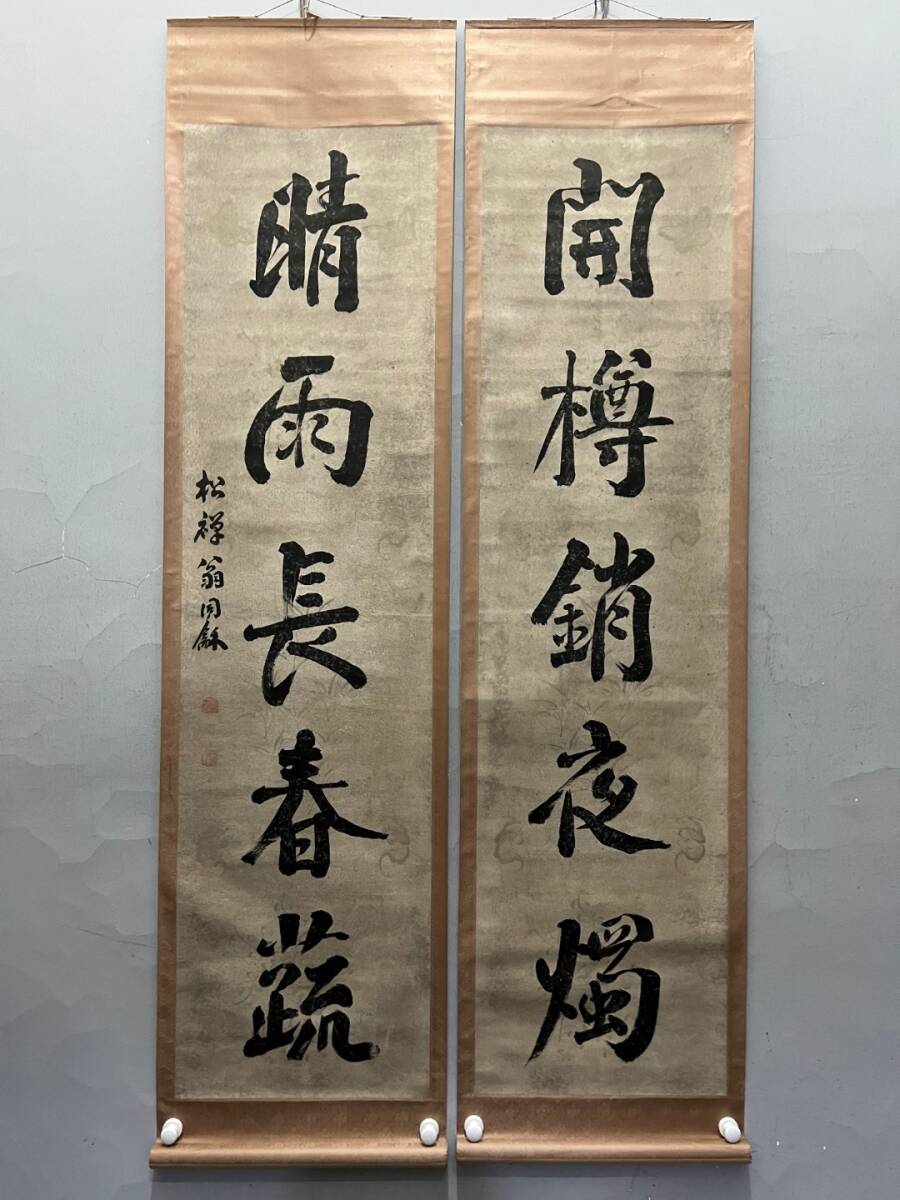 開樽銷夜燭
晴雨長春蔬
松禅翁同龢